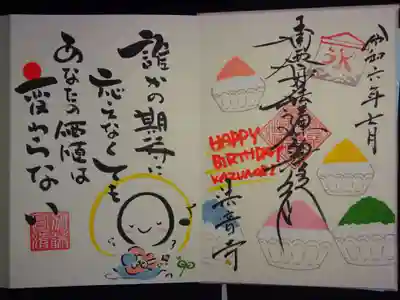 令和六年七月
氷
HAPPY
BIRTHDAY
法音寺
誰かの期待に
応えなくても
あなたの価値は
変わらない